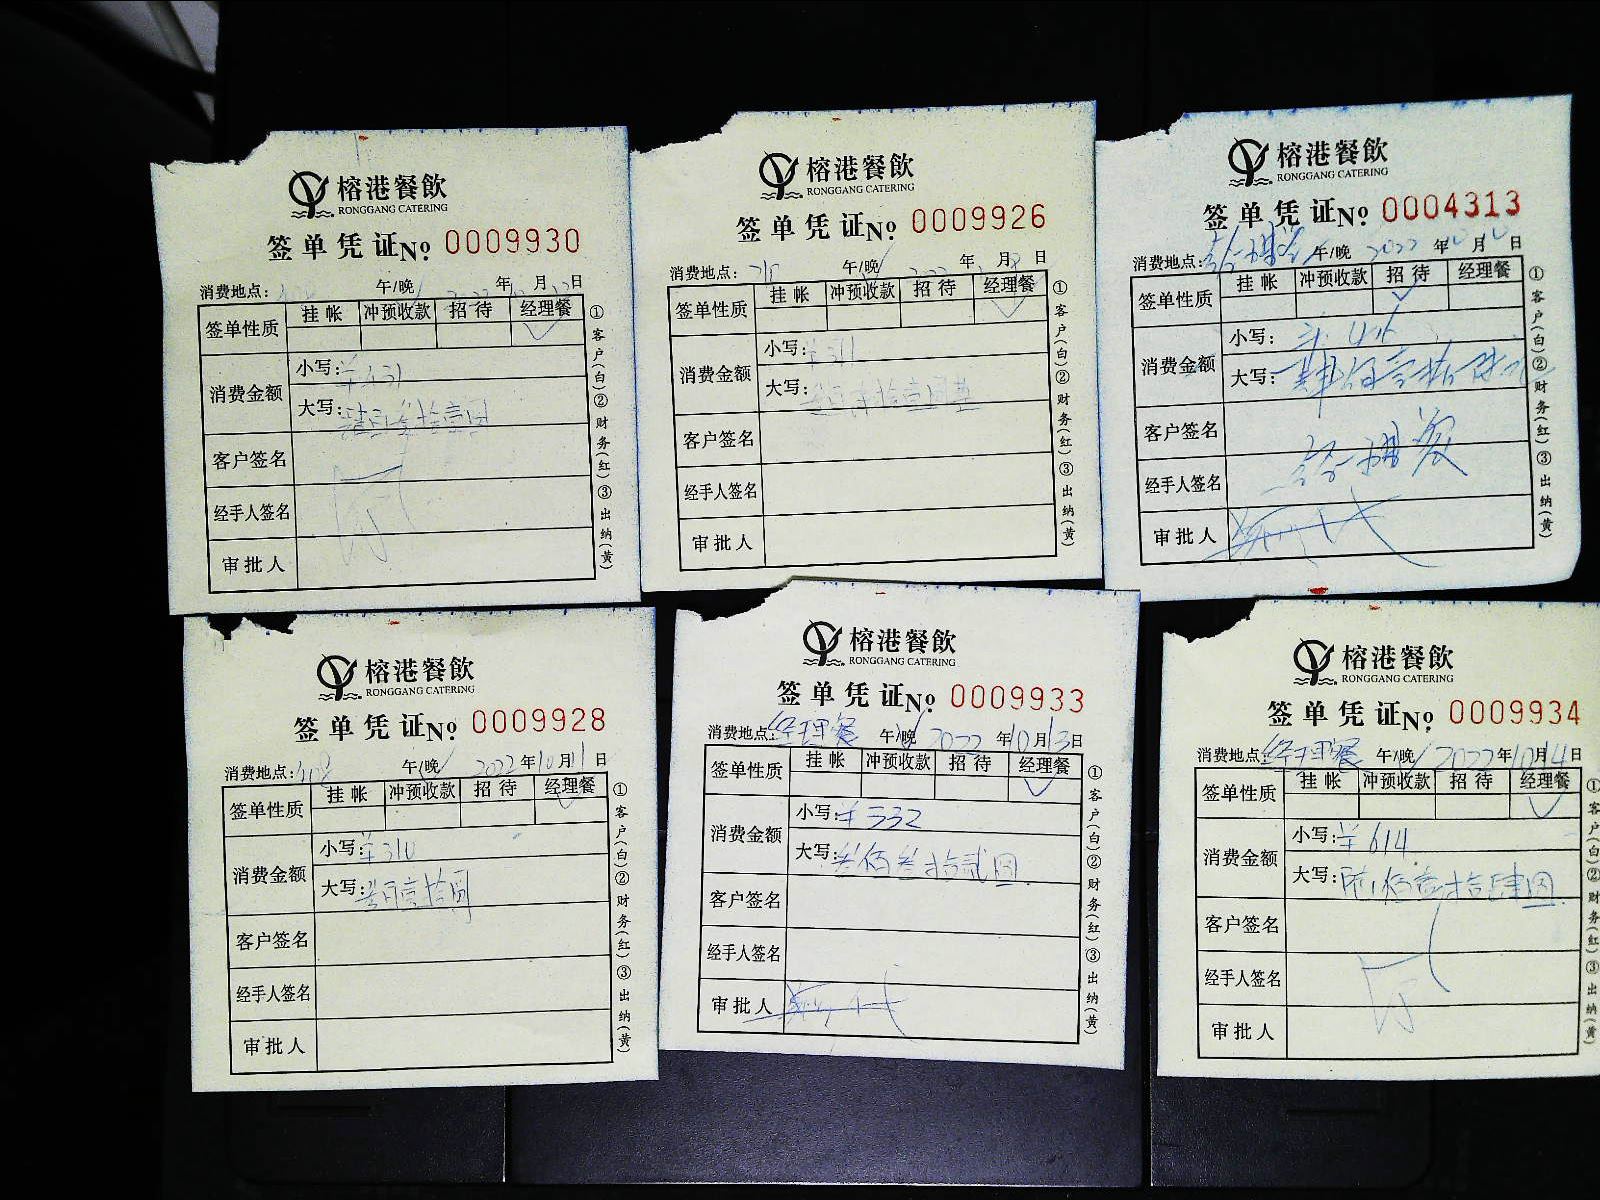 榕港餐飲
RONGGANG CATERING
签单凭证№ 0009930
消费地点: 午/晚 年 月 日
签单性质 挂帐 冲预收款 招待 经理餐
消费金额
小写:¥431
大写:肆百叁拾壹圆
客户签名
经手人签名
审批人
①客户(白)②财务(红)③出纳(黄)
榕港餐飲
RONGGANG CATERING
签单凭证№ 0009926
消费地点: 午/晚 2022年 月8日
签单性质 挂帐 冲预收款 招待 经理餐
消费金额
小写:¥311
大写:
客户签名
经手人签名
审批人
①客户(白)②财务(红)③出纳(黄)
榕港餐飲
RONGGANG CATERING
签单凭证№ 0004313
消费地点: 午/晚 2022年10月 日
签单性质 挂帐 冲预收款 招待 经理餐
消费金额
小写:¥416
大写:肆佰壹拾陆元
客户签名 经理餐
经手人签名
审批人
①客户(白)②财务(红)③出纳(黄)
榕港餐飲
RONGGANG CATERING
签单凭证№ 0009928
消费地点:408 午/晚 2022年10月11日
签单性质 挂帐 冲预收款 招待 经理餐
消费金额
小写:¥310
大写:叁百壹拾圆
客户签名
经手人签名
审批人
①客户(白)②财务(红)③出纳(黄)
榕港餐飲
RONGGANG CATERING
签单凭证№ 0009933
消费地点:经理餐 午/晚 2022年10月13日
签单性质 挂帐 冲预收款 招待 经理餐
消费金额
小写:¥332
大写:叁佰叁拾贰圆
客户签名
经手人签名
审批人
①客户(白)②财务(红)③出纳(黄)
榕港餐飲
RONGGANG CATERING
签单凭证№ 0009934
消费地点:经理餐 午/晚 2022年10月14日
签单性质 挂帐 冲预收款 招待 经理餐
消费金额
小写:¥614
大写:陆佰壹拾肆圆
客户签名
经手人签名
审批人
①客户(白)②财务(红)③出纳(黄)